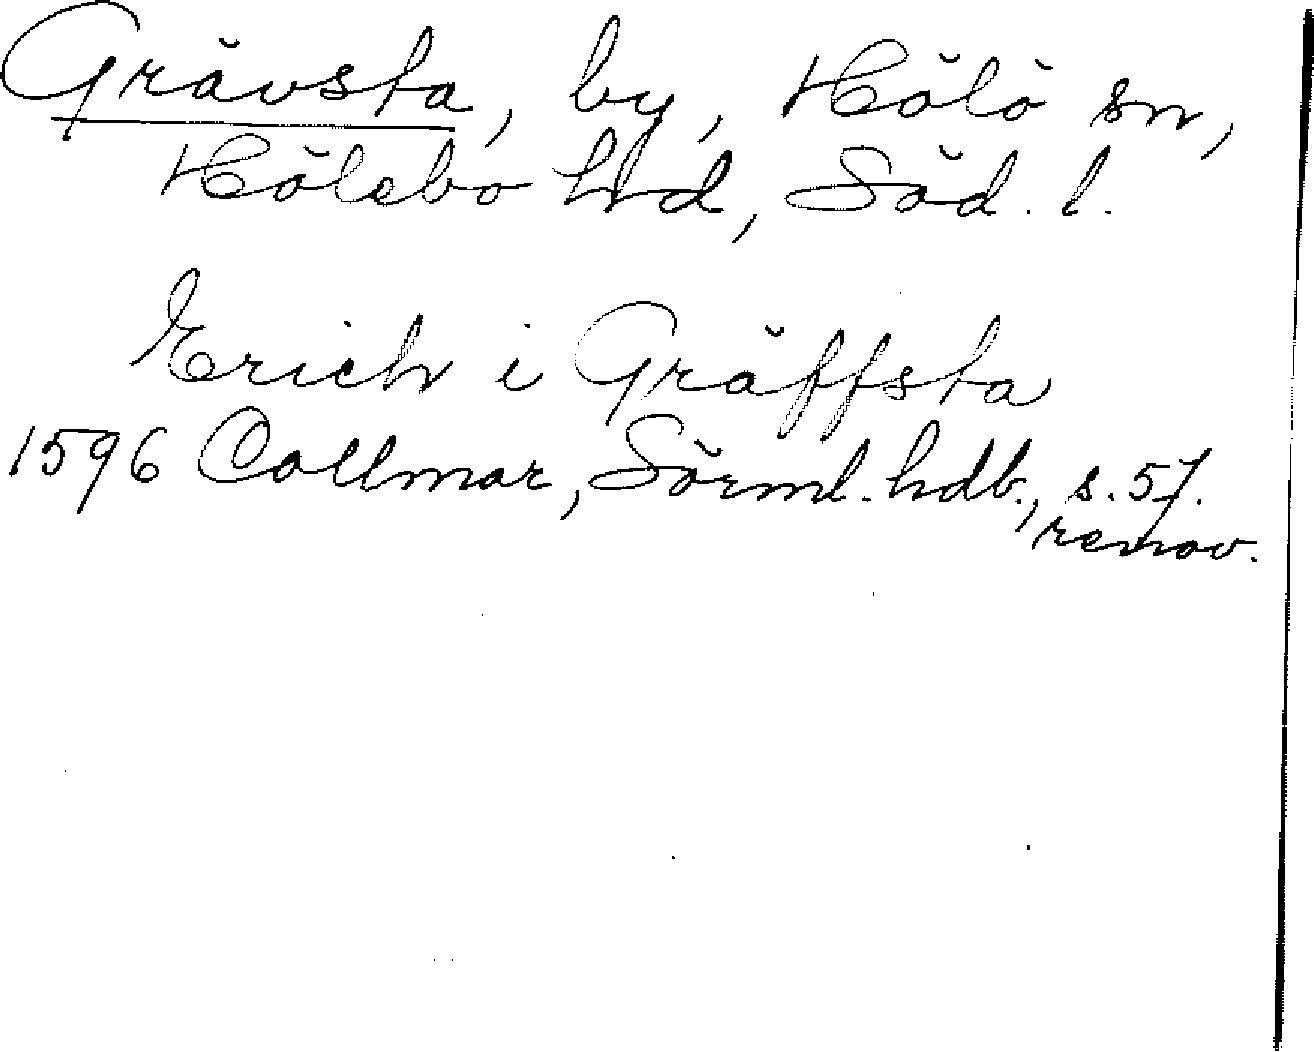 Grävsta, by, Hölö sn,
Hölebo hd, Söd. l.
Erich i Gräffsta
1596 Collmar, Sörml. hdb., s. 57.
renov.